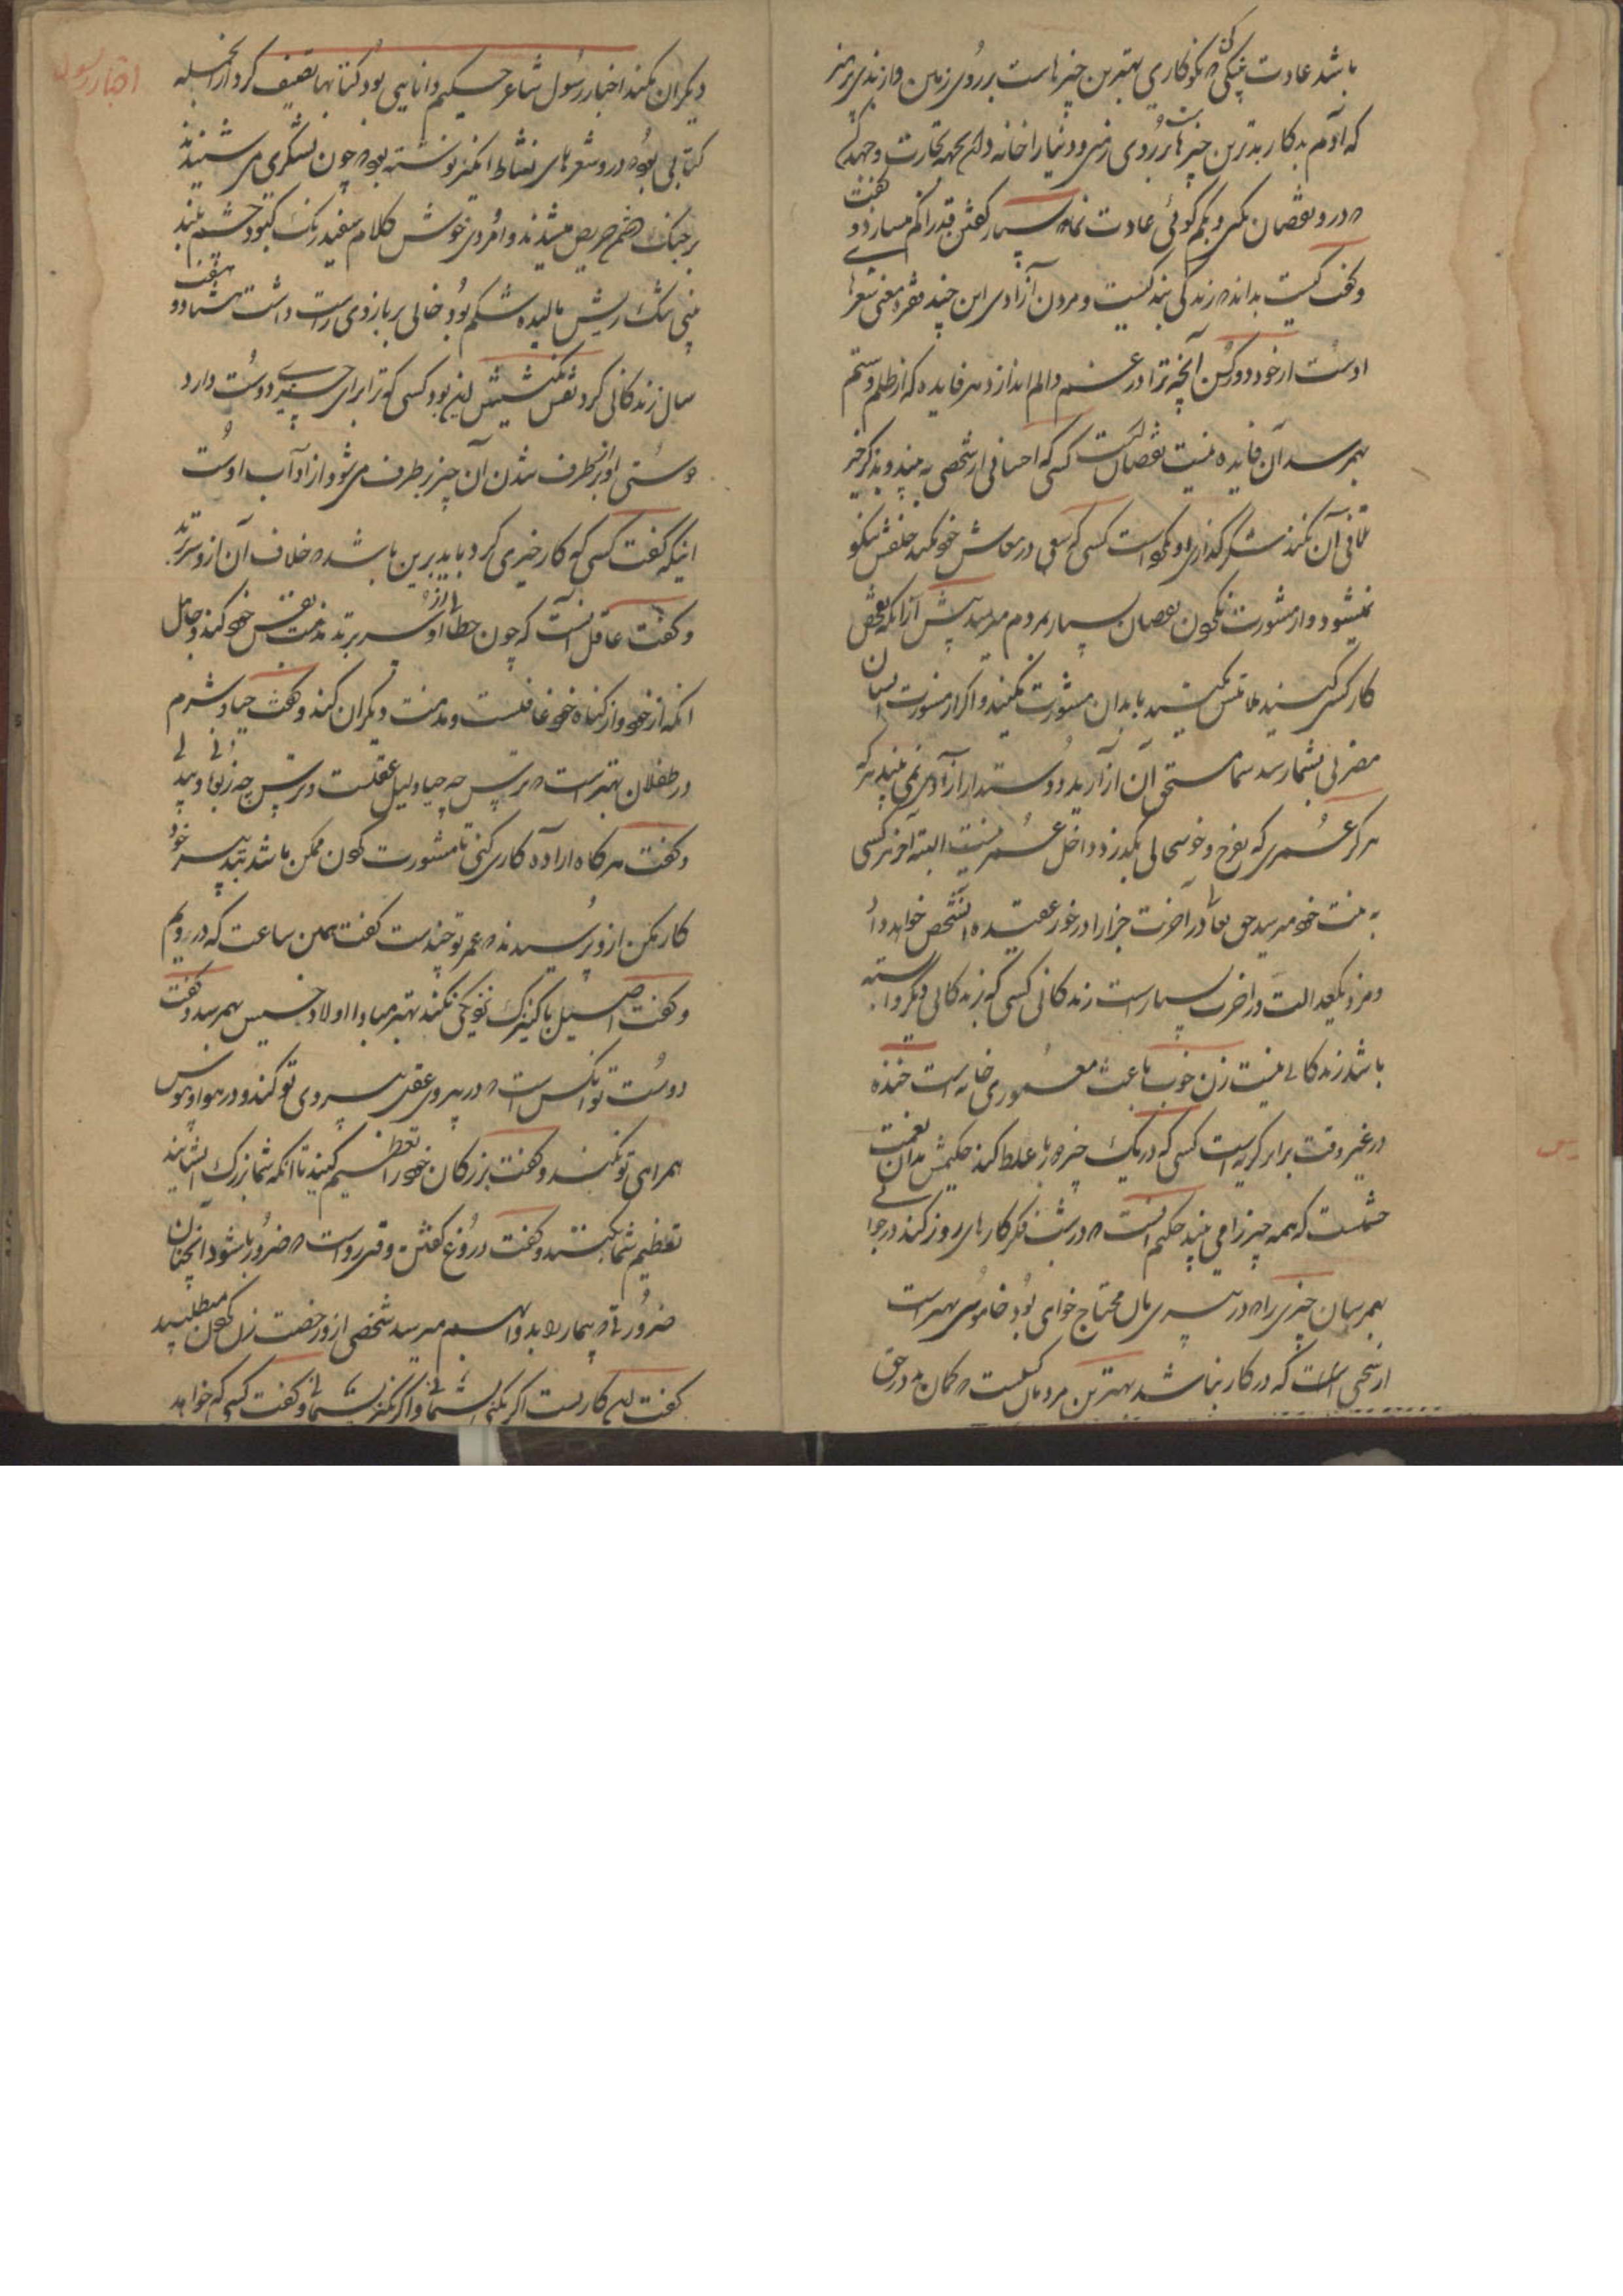 باشد عادت نیکی و نکوکاری بهترین چیزهاست بر روی زمین
که آدم بدکار بدترین چیزها بر روی زمین و دنیا را خانه دان بجهة تجارت و جهد کن
در و نقصان نکنی و بکم گوئی عادت نما بسیار گفتن قدر را کم میسازد و گفت
و گفت کیست بداند زندگی بندگیست و مردن آزادی این چند فقره معنی شعرها
اوست از خود دور کن آنچه ترا در غم و الم اندازد هر فایده که از ظلم و ستم
بهم رسد آن فایده نیست نقصان است کسی که احسانی از شخصی به بیند و بذکر خیر
تلافی آن نکند شکرگذاری او نکو است کسی که سعی در معاش خود نکند خلقش نیکو
نمیشود و از مشورت نکردن نقصان بسیار بمردم میرسد پیش از آنکه بفحص
کار کسی کنید ملامتش مکنید با بدان مشورت مکنید و اگر از مشورت ایشان
مضرتی بشما رسد شما مستحق آن آزارید و دوستدار آزار آدمی نمی بیند هرکه
هرگز عمری که بفرح و خوشحالی بگذرد داخل عمر نیست البته آخر هر کسی
به نیت خود میرسد حق تعالی در آخرت جزا را در خور عقیده آنشخص خواهد داد
و مزد یکعدالت در آخرت بسیار است زندگانی کسی که بزندگانی دیگر وابسته
باشد زندگانی نیست زن خوب باعث معموری خانه است خنده
در غیر وقت برابر گریه است کسی که در یک چیز دو بار غلط کند حکیمش مدان نعمت
چشمیست که همه چیز را می بیند حکیم آنست که در شب فکر کارهای روز کند در جوانی
بهم رسان چیزی را که در پیری بآن محتاج خواهی بود خاموشی بهتر است
از سخنی است که در کار نباشد بهترین مردمان کیست گمان بد در حق
دیگران نکند اخبار رسول شاعر حکیم و دانایی بود کتابها تصنیف کرد از انجمله
کتابی بود که در او شعرهای نشاط انگیز نوشته بود چون لشکری می شنیدند
بر جنگ خصم حریص میشدند و امردی خوش کلام سفید رنگ کبود چشم بلند
بینی تنگ ریش مالیده شکم بود خالی بر بازوی راست داشت هشتاد و هفت
سال زندگانی کرد نقش نگینش این بود کسی که ترا برای چیزی دوست دارد
دوستی او از برطرف شدن آن چیز برطرف می شود از آداب اوست
اینکه گفت کسی که کار خیری کرد باید برین باشد که خلاف آن ازو سر نزند
و گفت عاقل آنست که چون خطائی از او سر برزند مذمت نفس خود کند و جاهل
آنکه از خود و از گناه خود غافلست و مذمت دیگران کند و گفت حیا و شرم
در طفلان بهتر است از ترس چه حیا دلیل عقلست و ترس چه زبونی و بیدلی
و گفت هرگاه اراده کاری کنی تا مشورت کردن ممکن باشد بتدبیر خود
کار مکن ازو پرسیدند که عمر تو چندست گفت همین ساعت که در رویم
و گفت اصیل با کنیزک تزویج نکند بهتر مبادا اولاد خسیس بهم رسد و گفت
دوست تو آنکس است که در پیروی عقل پیروی تو کند و در هوا و هوس
همراهی تو نکند و گفت بزرگان خود را تعظیم کنید تا آنکه شما بزرگ شوید ایشان نیز
تعظیم شما کنند و گفت دروغ گفتن وقتی رواست که ضرور باشد و آنچنان
ضرور که بیمار را بدوا بهم میرسد شخصی ازو رخصت زن کردن میطلبید
گفت این کاریست اگر بکنی پشیمانی و اگر نکنی پشیمانی و گفت کسی که خواهد
اخبار رسول